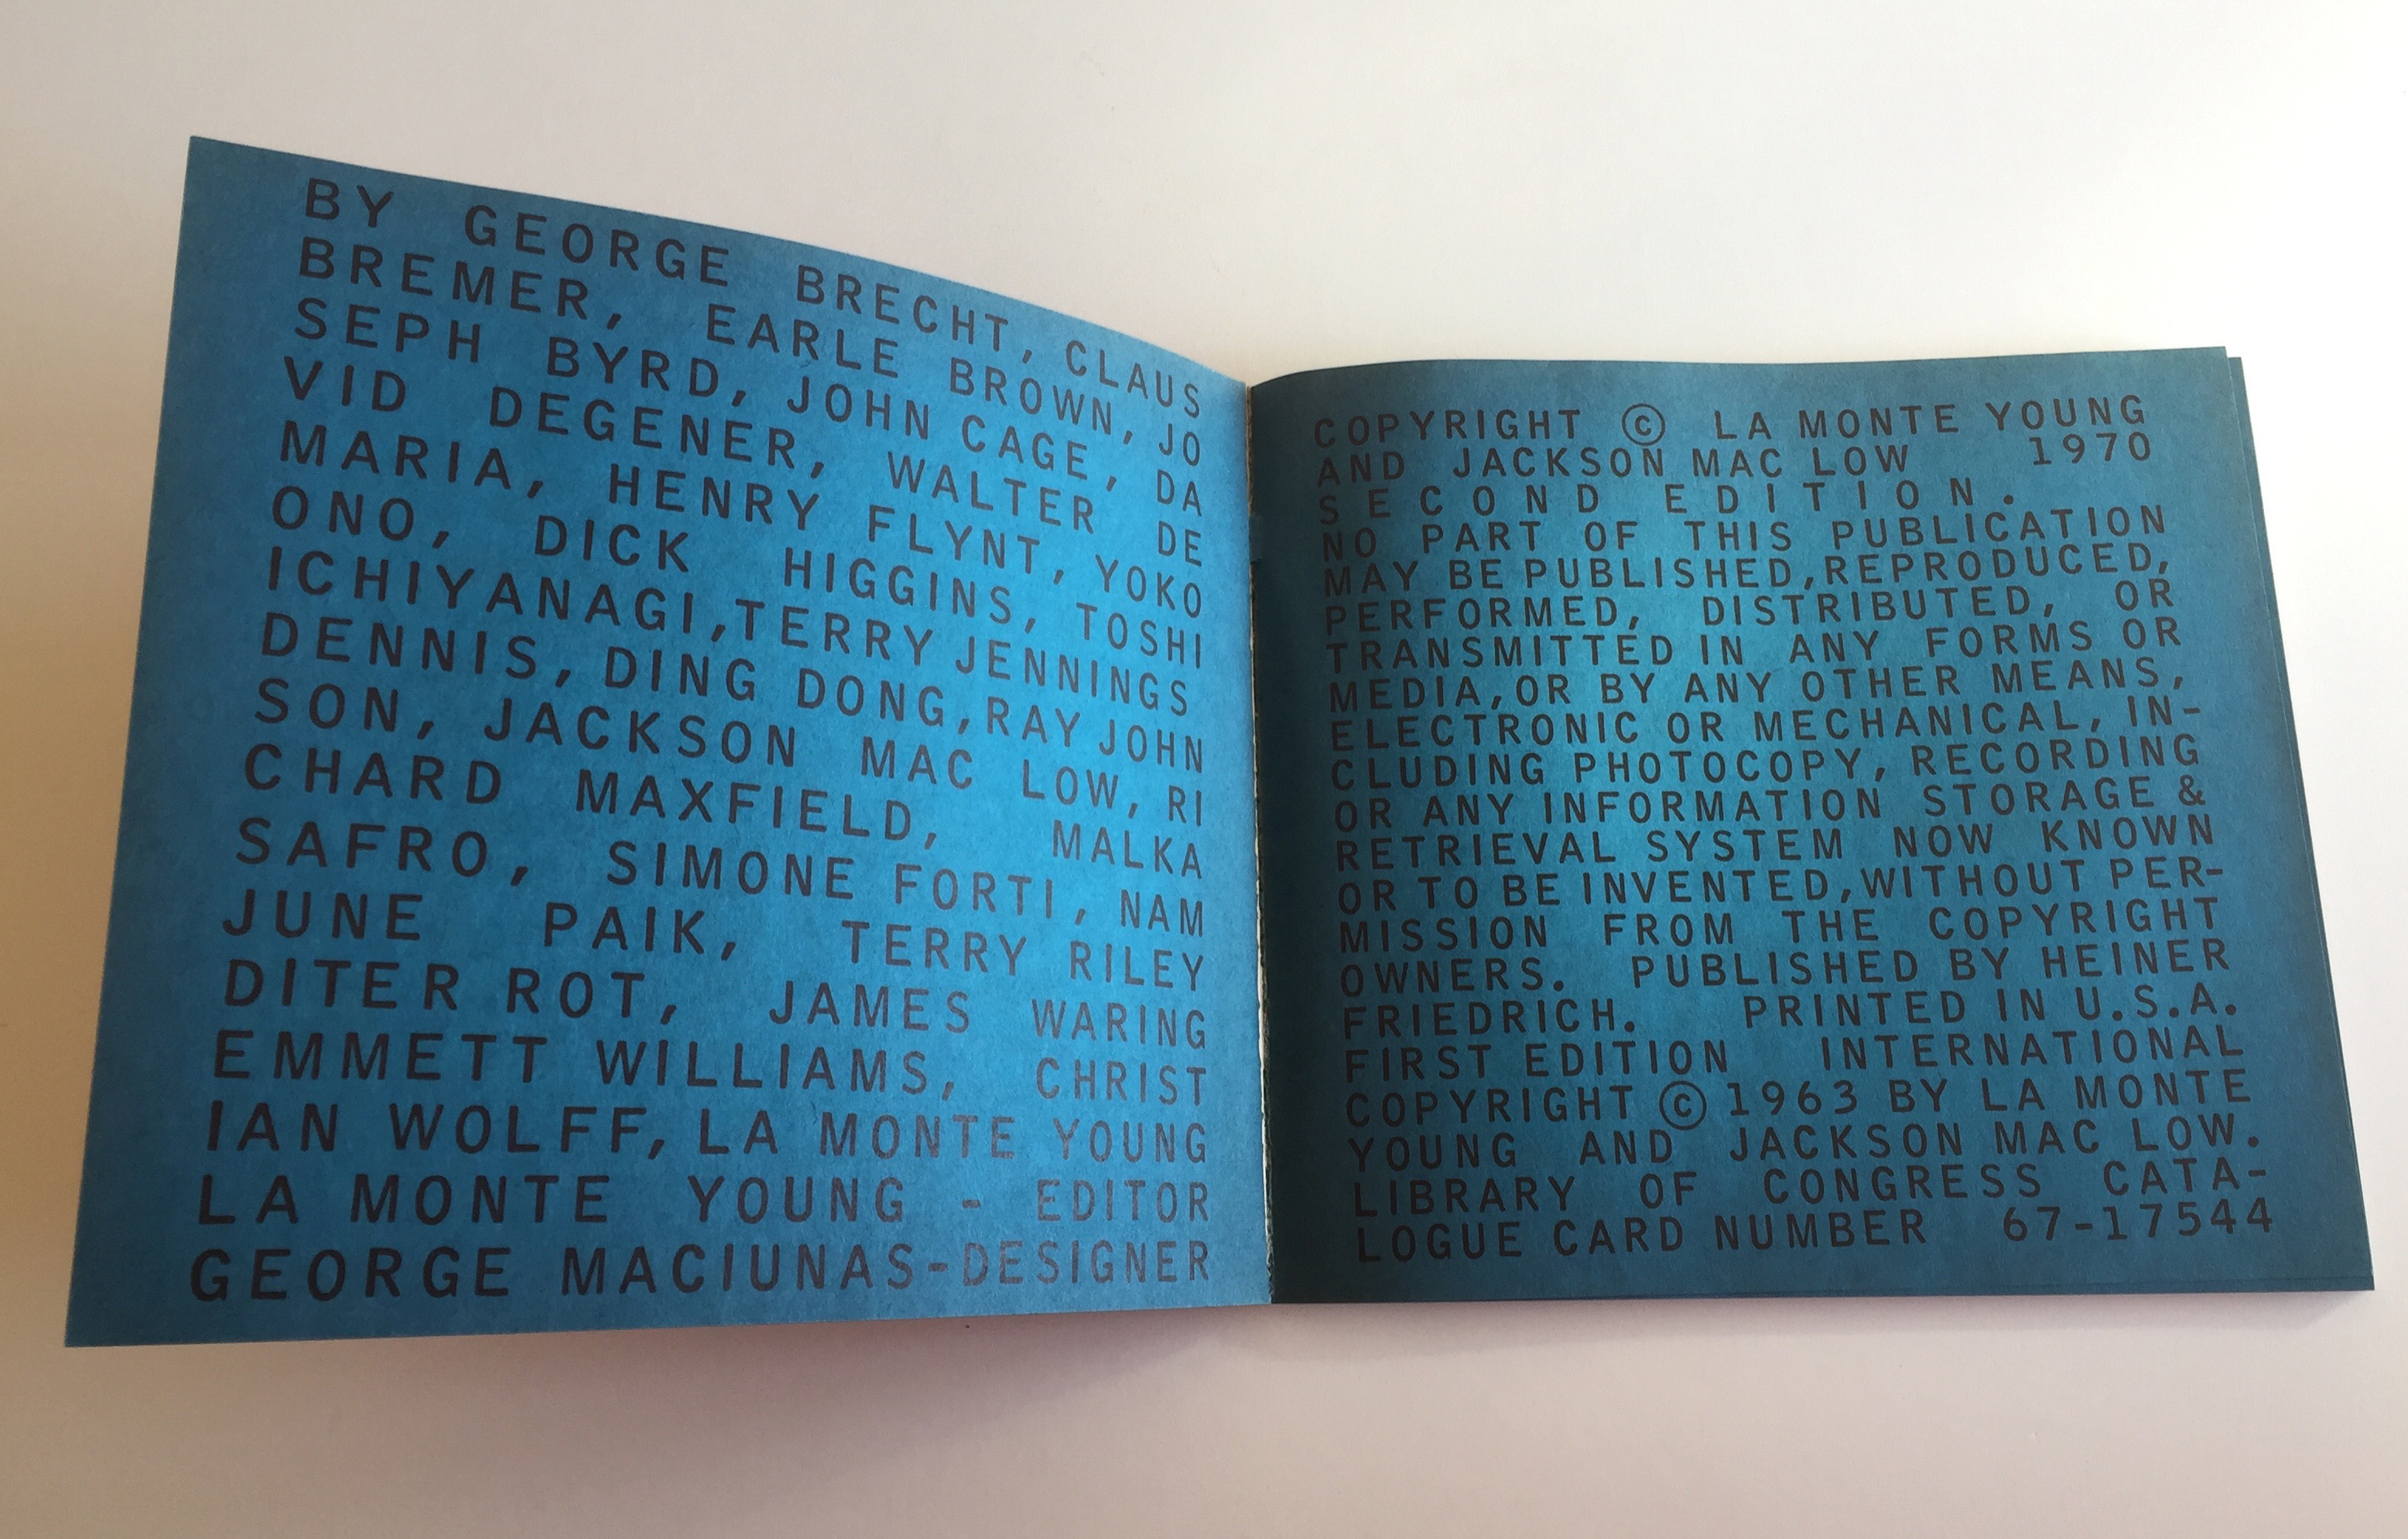 BY GEORGE BRECHT, CLAUS
BREMER, EARLE BROWN, JO
SEPH BYRD, JOHN CAGE, DA
VID DEGENER, WALTER DE
MARIA, HENRY FLYNT, YOKO
ONO, DICK HIGGINS, TOSHI
ICHIYANAGI, TERRY JENNINGS
DENNIS, DING DONG, RAY JOHN
SON, JACKSON MAC LOW, RI
CHARD MAXFIELD, MALKA
SAFRO, SIMONE FORTI, NAM
JUNE PAIK, TERRY RILEY
DITER ROT, JAMES WARING
EMMETT WILLIAMS, CHRIST
IAN WOLFF, LA MONTE YOUNG
LA MONTE YOUNG - EDITOR
GEORGE MACIUNAS-DESIGNER
COPYRIGHT © LA MONTE YOUNG
AND JACKSON MAC LOW 1970
SECOND EDITION.
NO PART OF THIS PUBLICATION
MAY BE PUBLISHED, REPRODUCED,
PERFORMED, DISTRIBUTED, OR
TRANSMITTED IN ANY FORMS OR
MEDIA, OR BY ANY OTHER MEANS,
ELECTRONIC OR MECHANICAL, IN-
CLUDING PHOTOCOPY, RECORDING
OR ANY INFORMATION STORAGE &
RETRIEVAL SYSTEM NOW KNOWN
OR TO BE INVENTED, WITHOUT PER-
MISSION FROM THE COPYRIGHT
OWNERS. PUBLISHED BY HEINER
FRIEDRICH. PRINTED IN U.S.A.
FIRST EDITION INTERNATIONAL
COPYRIGHT © 1963 BY LA MONTE
YOUNG AND JACKSON MAC LOW.
LIBRARY OF CONGRESS CATA-
LOGUE CARD NUMBER 67-17544